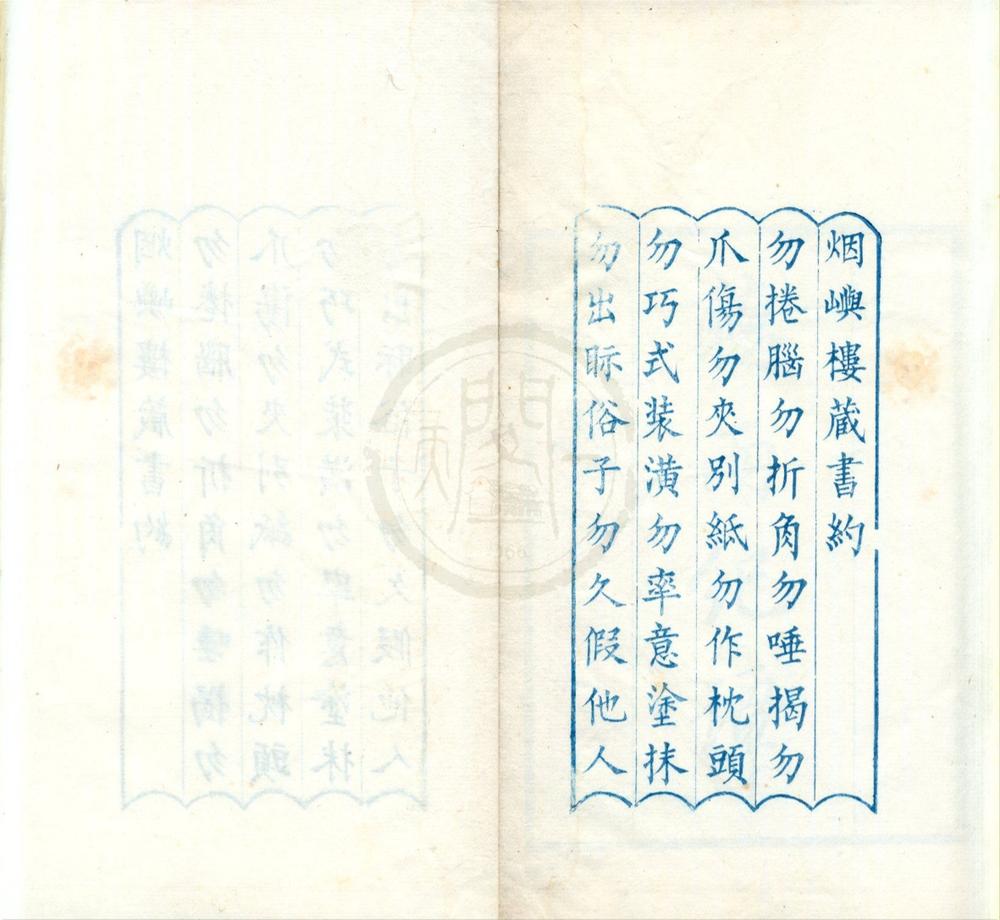 烟嶼樓藏書約
勿捲腦勿折角勿唾揭勿
爪傷勿夾別紙勿作枕頭
勿巧式装潢勿率意塗抹
勿出眎俗子勿久假他人